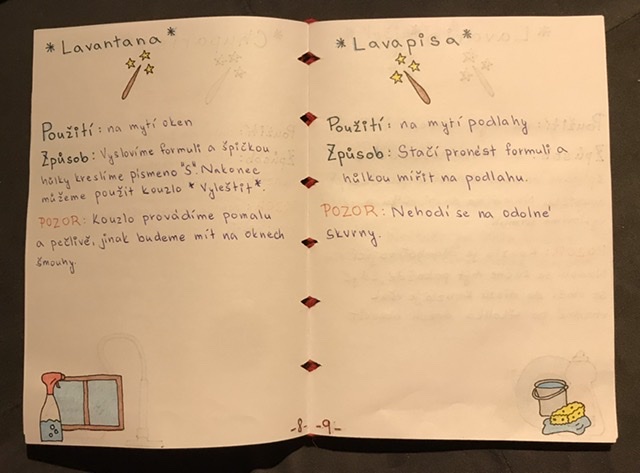 *Lavantana*
Použití: na mytí oken
Způsob: Vyslovíme formuli a špičkou
hůlky kreslíme písmeno "S". Nakonec
můžeme použít kouzlo *Vyleštit*.
POZOR: Kouzlo provádíme pomalu
a pečlivě, jinak budeme mít na oknech
šmouhy.
-8-
*Lavapisa*
Použití: na mytí podlahy
Způsob: Stačí pronést formuli a
hůlkou mířit na podlahu.
POZOR: Nehodí se na odolné
skvrny.
-9-